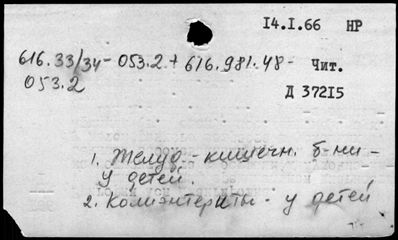 14.I.66 НР
616.33/34-053.2 + 616.981.48-
Чит.
053.2
Д 37215
1. Желуд.-кишечн. б-ни -
у детей.
2. Колиэнтериты - у детей